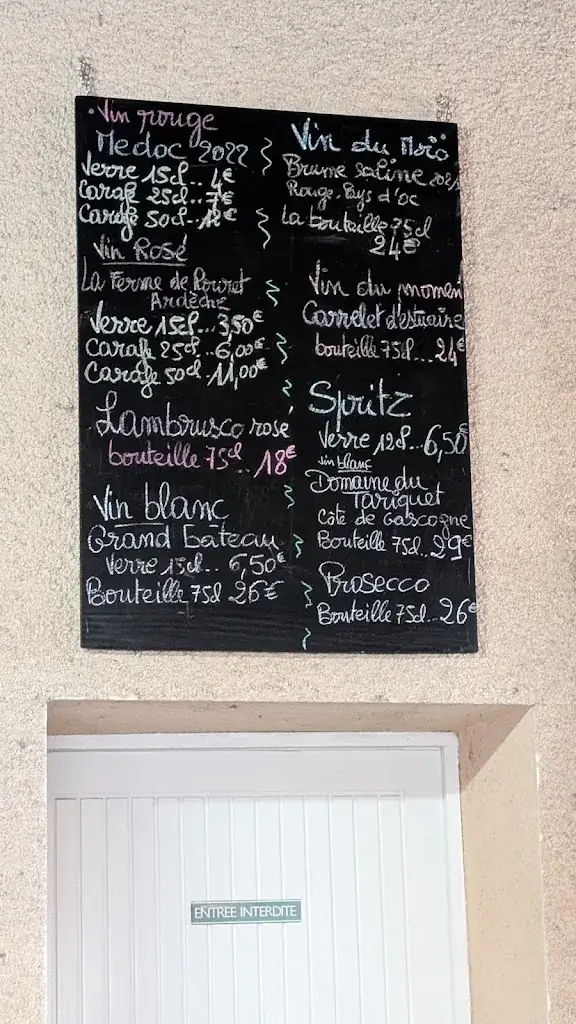 Vin rouge
Medoc 2022
Verre 15cl.. 4€
Carafe 25cl..7€
Carafe 50cl..12€
Vin Rosé
La Ferme de
Ardèche
Verre 15cl...3,50€
Carafe 25cl..6,00€
Carafe 50cl..11,00€
Lambrusco rosé
bouteille 75cl.. 18€
Vin blanc
Grand bateau
Verre 15cl.. 6,50€
Bouteille 75cl 26€
Vin du Moiö
Brume Saline
Rouge. Pays d'oc
La bouteille 75cl
24€
Vin du momen
Carrelet d'estuaire
bouteille 75cl...24€
Spritz
Verre 12cl..6,50€
vin blanc
Domaine du
Tariquet
Côte de Gascogne
Bouteille 75cl..29€
Prosecco
Bouteille 75cl...26€
ENTREE INTERDITE